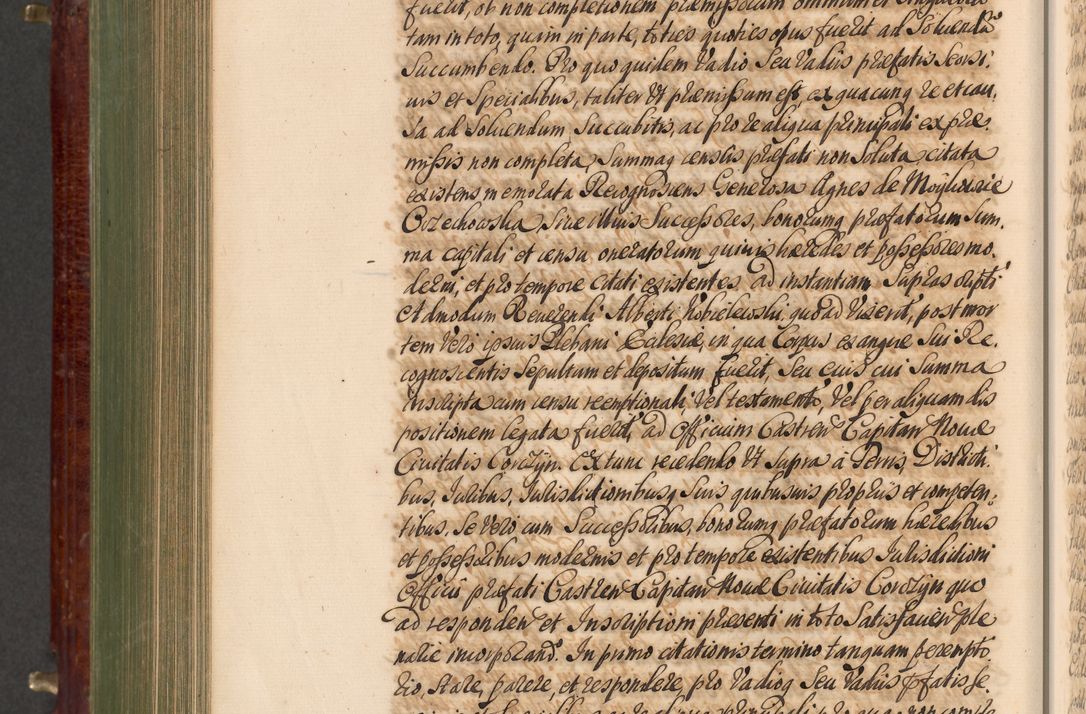 fuerit, ob non completionem præmissorum omnium et singulorũ
tam in toto, quam in parte, toties quoties opus fuerit ad Soluendũ
Succumbendo. Pro quo quidem Vadio Seu Vadiis præfatis Seorsi.
uis et Specialibus, taliter Vt præmissum est, ex quacunq re et cau,
sa ad Soluendum Succubitis, ac pro re aliqua principali ex præ,
missis non completa, Summaq census præfati non Soluta citata
existens memorata Recognoscens Generosa Agnes de Moyłuscie
Orzechowska Siue illius Successores, bonorumq præfatorum Sum,
ma capitali et censu oneratorum quiuis hæredes et possessores mo,
derni, et pro tempore citati existentes, ad instantiam Supra scripti
et Admodum Reuerendi Alberti Kobielewski, quoad Vixerit, post mor
tem Vero ipsius Plebani Ecclesiæ, in qua Corpus exangue Sui Re,
cognoscentis Sepultum et depositum fuerit, Seu cuius cui Summa
inscripta cum censu reemptionali, Vel testamento, Vel per aliquam dis
positionem legata fuerit, ad Officium Castren Capitan Nouæ
Ciuitatis Corczyn. Ex tunc recedendo Vt Supra à Terris, Districti.
bus, Iuribus, Iurisdictionibusq Suis quibusuis propriis et competen,
tibus, Se Vero cum Successoribus, bonorumq præfatorum hæredibus
et possessoribus modernis et pro tempore existentibus Iurisdictioni
Officii præfati Castren Capitan Nouæ Ciuitatis Corczyn quo
ad responden et Inscriptioni præsenti in toto Satisfacien ple
narie incorporand. In primo citationis termino tanquam perempto
rio, Stare, parere, et respondere, pro Vadioq Seu Vadiis pfatis se.